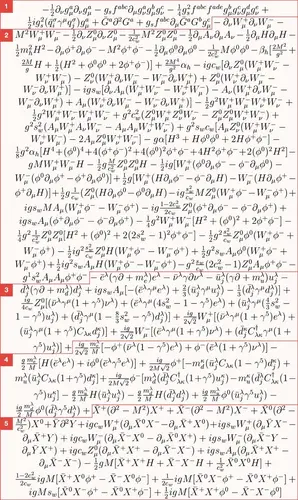 1 -\frac{1}{2}\partial_\nu g^a_\mu\partial_\nu g^a_\mu - g_s f^{abc}\partial_\mu g^a_\nu g^b_\mu g^c_\nu - \frac{1}{4}g^2_s f^{abc}f^{ade}g^b_\mu g^c_\nu g^d_\mu g^e_\nu +
\frac{1}{2}ig^2_s(\bar{q}^\sigma_i\gamma^\mu q^\sigma_j)g^a_\mu + \bar{G}^a\partial^2G^a + g_s f^{abc}\partial_\mu\bar{G}^aG^bg^c_\mu - \partial_\nu W^+_\mu\partial_\nu W^-_\mu -
2 M^2W^+_\mu W^-_\mu - \frac{1}{2}\partial_\nu Z^0_\mu\partial_\nu Z^0_\mu - \frac{1}{2c^2_w}M^2Z^0_\mu Z^0_\mu - \frac{1}{2}\partial_\mu A_\nu\partial_\mu A_\nu - \frac{1}{2}\partial_\mu H\partial_\mu H -
\frac{1}{2}m^2_hH^2 - \partial_\mu\phi^+\partial_\mu\phi^- - M^2\phi^+\phi^- - \frac{1}{2}\partial_\mu\phi^0\partial_\mu\phi^0 - \frac{1}{2c^2_w}M\phi^0\phi^0 - \beta_h[\frac{2M^2}{g^2} +
\frac{2M}{g}H + \frac{1}{2}(H^2 + \phi^0\phi^0 + 2\phi^+\phi^-)] + \frac{2M^4}{g^2}\alpha_h - igc_w[\partial_\nu Z^0_\mu(W^+_\mu W^-_\nu -
W^+_\nu W^-_\mu) - Z^0_\nu(W^+_\mu\partial_\nu W^-_\mu - W^-_\mu\partial_\nu W^+_\mu) + Z^0_\mu(W^+_\nu\partial_\nu W^-_\mu -
W^-_\nu\partial_\nu W^+_\mu)] - igs_w[\partial_\nu A_\mu(W^+_\mu W^-_\nu - W^+_\nu W^-_\mu) - A_\nu(W^+_\mu\partial_\nu W^-_\mu -
W^-_\mu\partial_\nu W^+_\mu) + A_\mu(W^+_\nu\partial_\nu W^-_\mu - W^-_\nu\partial_\nu W^+_\mu)] - \frac{1}{2}g^2W^+_\mu W^-_\mu W^+_\nu W^-_\nu +
\frac{1}{2}g^2W^+_\mu W^-_\nu W^+_\mu W^-_\nu + g^2c^2_w(Z^0_\mu W^+_\mu Z^0_\nu W^-_\nu - Z^0_\mu Z^0_\mu W^+_\nu W^-_\nu) +
g^2s^2_w(A_\mu W^+_\mu A_\nu W^-_\nu - A_\mu A_\mu W^+_\nu W^-_\nu) + g^2s_wc_w[A_\mu Z^0_\nu(W^+_\mu W^-_\nu -
W^+_\nu W^-_\mu) - 2A_\mu Z^0_\mu W^+_\nu W^-_\nu] - g\alpha[H^3 + H\phi^0\phi^0 + 2H\phi^+\phi^-] -
\frac{1}{8}g^2\alpha_h[H^4 + (\phi^0)^4 + 4(\phi^+\phi^-)^2 + 4(\phi^0)^2\phi^+\phi^- + 4H^2\phi^+\phi^- + 2(\phi^0)^2H^2] -
gMW^+_\mu W^-_\mu H - \frac{1}{2}g\frac{M}{c^2_w}Z^0_\mu Z^0_\mu H - \frac{1}{2}ig[W^+_\mu(\phi^0\partial_\mu\phi^- - \phi^-\partial_\mu\phi^0) -
W^-_\mu(\phi^0\partial_\mu\phi^+ - \phi^+\partial_\mu\phi^0)] + \frac{1}{2}g[W^+_\mu(H\partial_\mu\phi^- - \phi^-\partial_\mu H) - W^-_\mu(H\partial_\mu\phi^+ -
\phi^+\partial_\mu H)] + \frac{1}{2}g\frac{1}{c_w}(Z^0_\mu(H\partial_\mu\phi^0 - \phi^0\partial_\mu H) - ig\frac{s^2_w}{c_w}MZ^0_\mu(W^+_\mu\phi^- - W^-_\mu\phi^+) +
igs_wMA_\mu(W^+_\mu\phi^- - W^-_\mu\phi^+) - ig\frac{1-2c^2_w}{2c_w}Z^0_\mu(\phi^+\partial_\mu\phi^- - \phi^-\partial_\mu\phi^+) +
igs_wA_\mu(\phi^+\partial_\mu\phi^- - \phi^-\partial_\mu\phi^+) - \frac{1}{4}g^2W^+_\mu W^-_\mu[H^2 + (\phi^0)^2 + 2\phi^+\phi^-] -
\frac{1}{4}g^2\frac{1}{c^2_w}Z^0_\mu Z^0_\mu[H^2 + (\phi^0)^2 + 2(2s^2_w - 1)^2\phi^+\phi^-] - \frac{1}{2}g^2\frac{s^2_w}{c_w}Z^0_\mu\phi^0(W^+_\mu\phi^- +
W^-_\mu\phi^+) - \frac{1}{2}ig^2\frac{s^2_w}{c_w}Z^0_\mu H(W^+_\mu\phi^- - W^-_\mu\phi^+) + \frac{1}{2}g^2s_wA_\mu\phi^0(W^+_\mu\phi^- +
W^-_\mu\phi^+) + \frac{1}{2}ig^2s_wA_\mu H(W^+_\mu\phi^- - W^-_\mu\phi^+) - g^2\frac{s_w}{c_w}(2c^2_w - 1)Z^0_\mu A_\mu\phi^+\phi^- -
g^1s^2_wA_\mu A_\mu\phi^+\phi^- - \bar{e}^\lambda(\gamma\partial + m^\lambda_e)e^\lambda - \bar{\nu}^\lambda\gamma\partial\nu^\lambda - \bar{u}^\lambda_j(\gamma\partial + m^\lambda_u)u^\lambda_j -
3 \bar{d}^\lambda_j(\gamma\partial + m^\lambda_d)d^\lambda_j + igs_wA_\mu[-(\bar{e}^\lambda\gamma^\mu e^\lambda) + \frac{2}{3}(\bar{u}^\lambda_j\gamma^\mu u^\lambda_j) - \frac{1}{3}(\bar{d}^\lambda_j\gamma^\mu d^\lambda_j)] +
\frac{ig}{4c_w}Z^0_\mu[(\bar{\nu}^\lambda\gamma^\mu(1 + \gamma^5)\nu^\lambda) + (\bar{e}^\lambda\gamma^\mu(4s^2_w - 1 - \gamma^5)e^\lambda) + (\bar{u}^\lambda_j\gamma^\mu(\frac{4}{3}s^2_w -
1 - \gamma^5)u^\lambda_j) + (\bar{d}^\lambda_j\gamma^\mu(1 - \frac{8}{3}s^2_w - \gamma^5)d^\lambda_j)] + \frac{ig}{2\sqrt{2}}W^+_\mu[(\bar{\nu}^\lambda\gamma^\mu(1 + \gamma^5)e^\lambda) +
(\bar{u}^\lambda_j\gamma^\mu(1 + \gamma^5)C_{\lambda\kappa}d^\kappa_j)] + \frac{ig}{2\sqrt{2}}W^-_\mu[(\bar{e}^\lambda\gamma^\mu(1 + \gamma^5)\nu^\lambda) + (\bar{d}^\kappa_jC^\dagger_{\lambda\kappa}\gamma^\mu(1 +
\gamma^5)u^\lambda_j)] + \frac{ig}{2\sqrt{2}}\frac{m^\lambda_e}{M}[-\phi^+(\bar{\nu}^\lambda(1 - \gamma^5)e^\lambda) + \phi^-(\bar{e}^\lambda(1 + \gamma^5)\nu^\lambda)] -
4 \frac{g}{2}\frac{m^\lambda_e}{M}[H(\bar{e}^\lambda e^\lambda) + i\phi^0(\bar{e}^\lambda\gamma^5e^\lambda)] + \frac{ig}{2M\sqrt{2}}\phi^+[-m^\kappa_d(\bar{u}^\lambda_jC_{\lambda\kappa}(1 - \gamma^5)d^\kappa_j) +
m^\lambda_u(\bar{u}^\lambda_jC_{\lambda\kappa}(1 + \gamma^5)d^\kappa_j] + \frac{ig}{2M\sqrt{2}}\phi^-[m^\lambda_d(\bar{d}^\lambda_jC^\dagger_{\lambda\kappa}(1 + \gamma^5)u^\kappa_j) - m^\kappa_u(\bar{d}^\lambda_jC^\dagger_{\lambda\kappa}(1 -
\gamma^5)u^\kappa_j] - \frac{g}{2}\frac{m^\lambda_u}{M}H(\bar{u}^\lambda_ju^\lambda_j) - \frac{g}{2}\frac{m^\lambda_d}{M}H(\bar{d}^\lambda_jd^\lambda_j) + \frac{ig}{2}\frac{m^\lambda_u}{M}\phi^0(\bar{u}^\lambda_j\gamma^5u^\lambda_j) -
\frac{ig}{2}\frac{m^\lambda_d}{M}\phi^0(\bar{d}^\lambda_j\gamma^5d^\lambda_j) + \bar{X}^+(\partial^2 - M^2)X^+ + \bar{X}^-(\partial^2 - M^2)X^- + \bar{X}^0(\partial^2 -
5 \frac{M^2}{c^2_w})X^0 + \bar{Y}\partial^2Y + igc_wW^+_\mu(\partial_\mu\bar{X}^0X^- - \partial_\mu\bar{X}^+X^0) + igs_wW^+_\mu(\partial_\mu\bar{Y}X^- -
\partial_\mu\bar{X}^+Y) + igc_wW^-_\mu(\partial_\mu\bar{X}^-X^0 - \partial_\mu\bar{X}^0X^+) + igs_wW^-_\mu(\partial_\mu\bar{X}^-Y -
\partial_\mu\bar{Y}X^+) + igc_wZ^0_\mu(\partial_\mu\bar{X}^+X^+ - \partial_\mu\bar{X}^-X^-) + igs_wA_\mu(\partial_\mu\bar{X}^+X^+ -
\partial_\mu\bar{X}^-X^-) - \frac{1}{2}gM[\bar{X}^+X^+H + \bar{X}^-X^-H + \frac{1}{c^2_w}\bar{X}^0X^0H] +
\frac{1-2c^2_w}{2c_w}igM[\bar{X}^+X^0\phi^+ - \bar{X}^-X^0\phi^-] + \frac{1}{2c_w}igM[\bar{X}^0X^-\phi^+ - \bar{X}^0X^+\phi^-] +
igMs_w[\bar{X}^0X^-\phi^+ - \bar{X}^0X^+\phi^-] + \frac{1}{2}igM[\bar{X}^+X^+\phi^0 - \bar{X}^-X^-\phi^0]